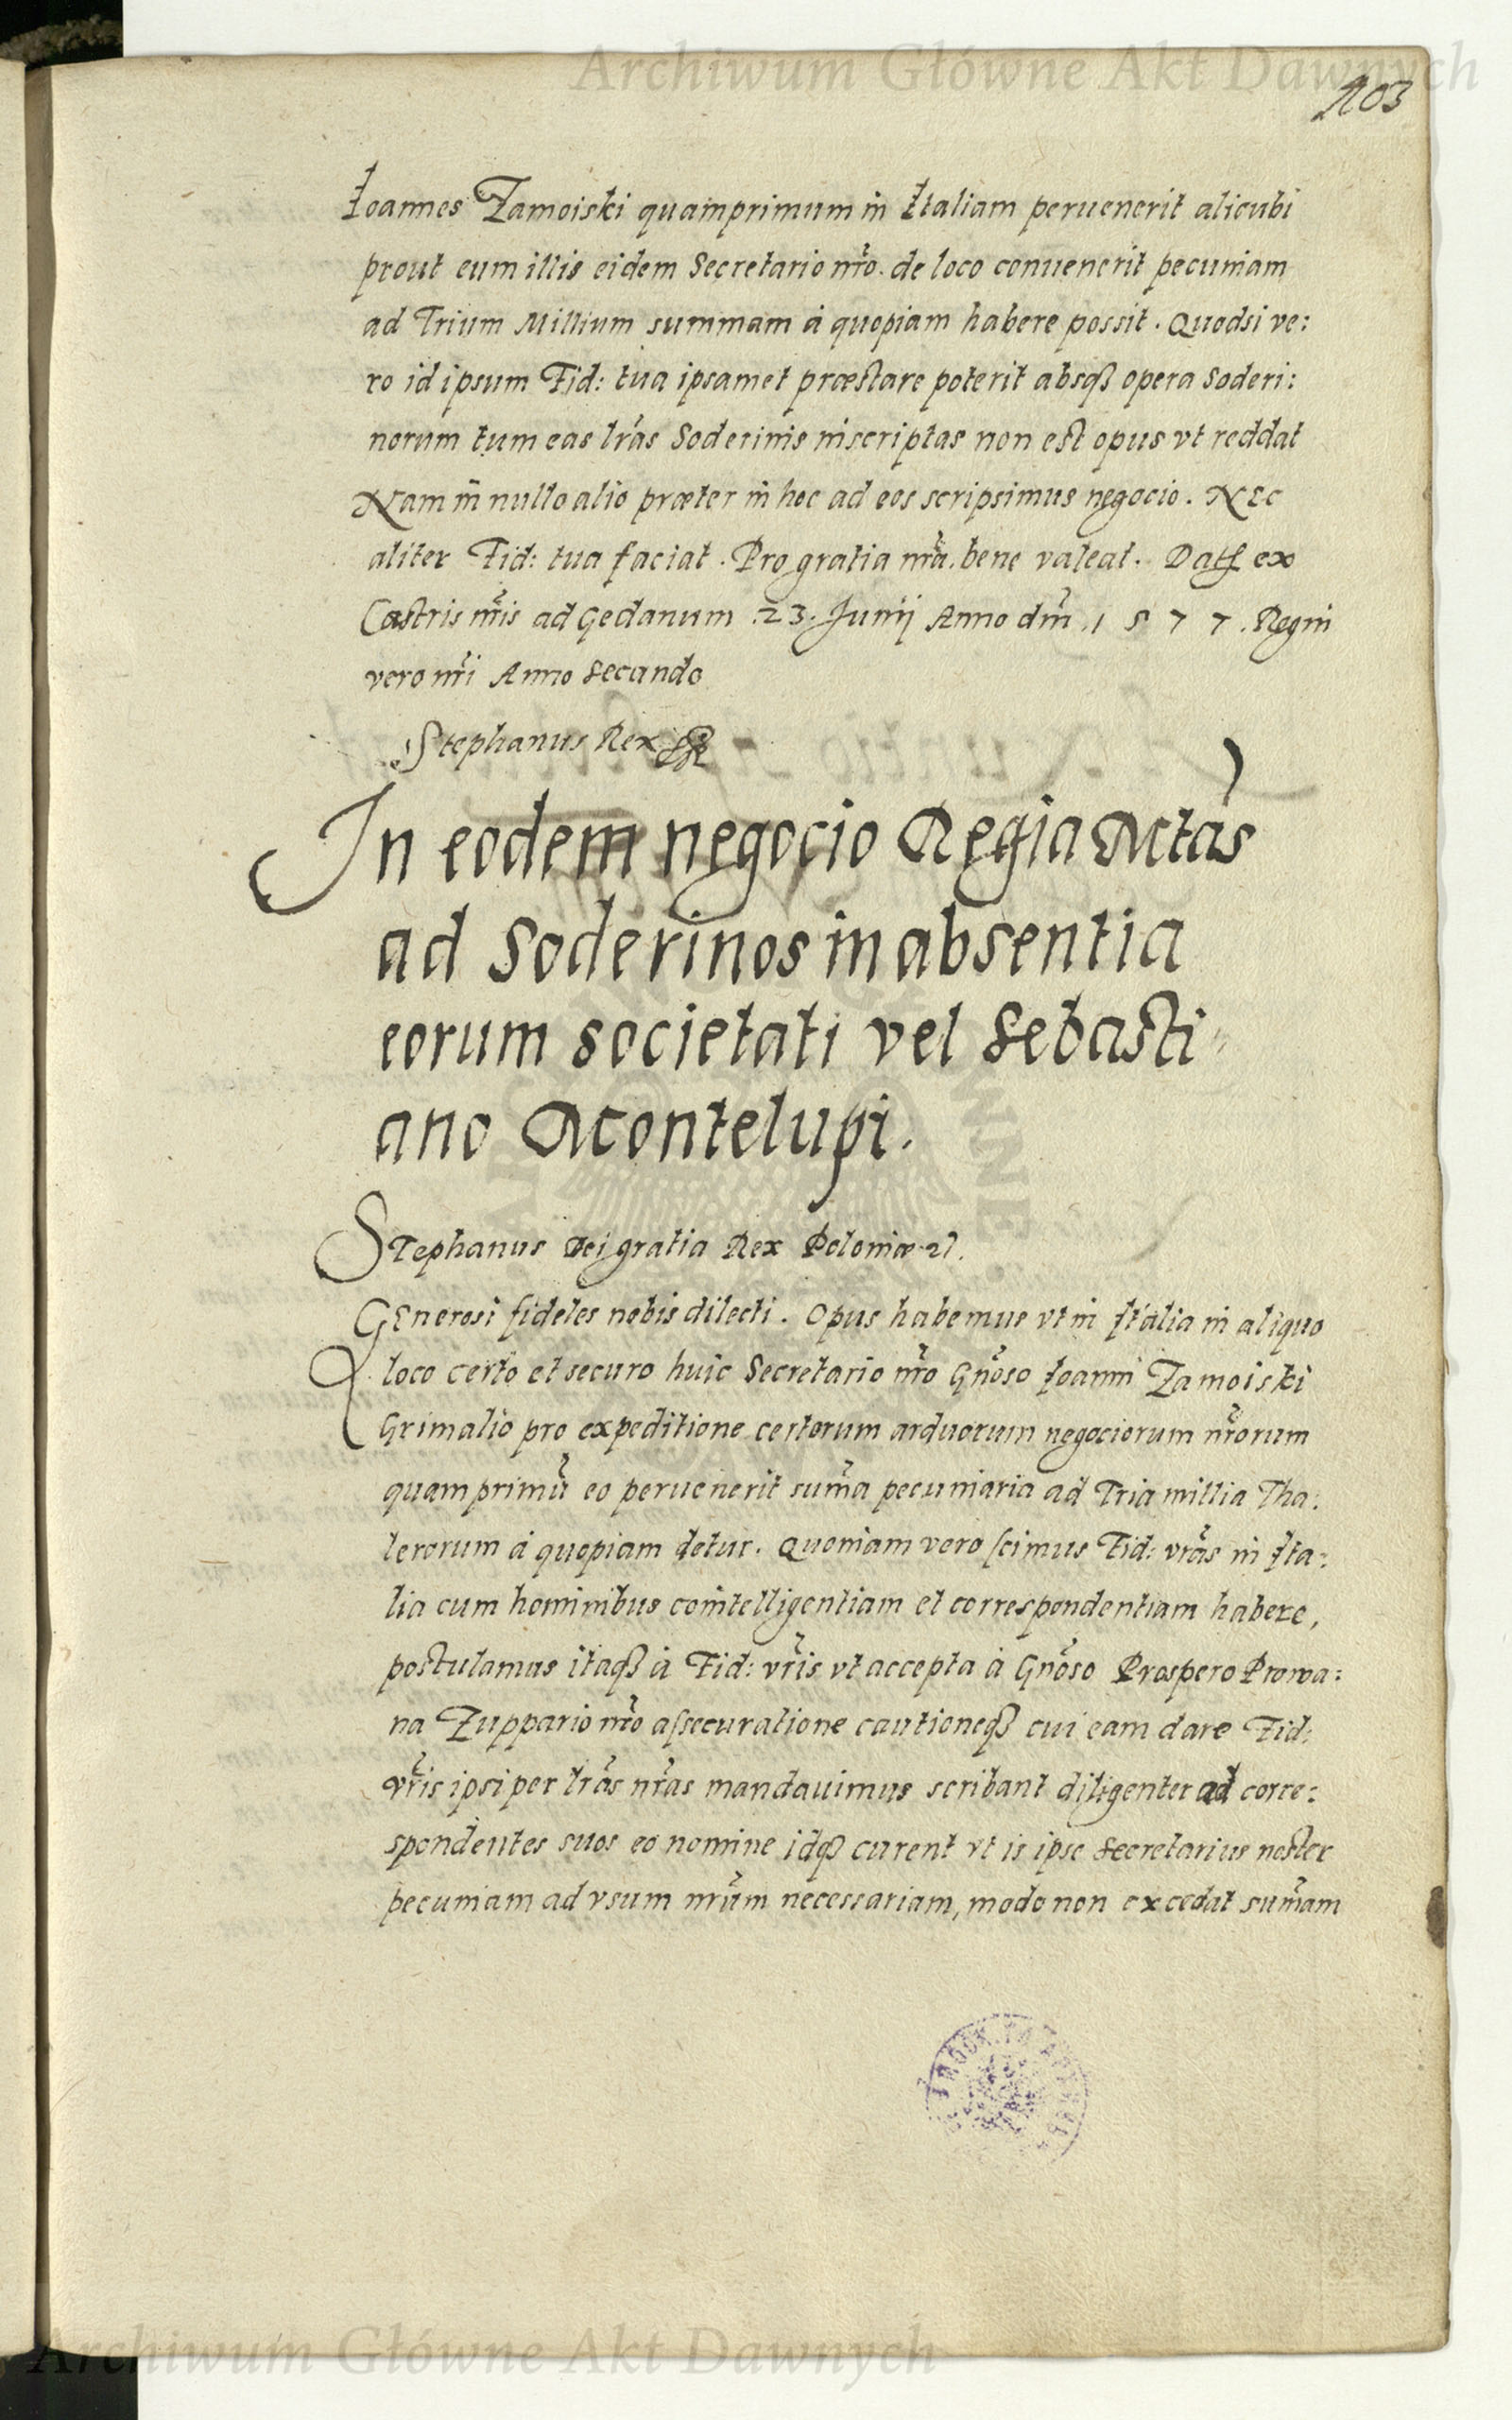 Archiwum Główne Akt Dawnych
103
Ioannes Zamoiski quamprimum in Italiam peruenerit alicubi
prout cum illis eidem Secretario nr̃o. de loco conuenerit pecuniam
ad Trium Millium summam à quopiam habere possit. Quodsi ve:
ro id ipsum Fid: tua ipsamet præstare poterit absqȝ opera Soderi:
norum tum eas lr̃as Soderinis inscriptas non est opus vt reddat
Nam in nullo alio præter in hoc ad eos scripsimus negocio. NEc
aliter Fid: tua faciat. Pro gratia nr̃a. bene valeat. Datȝ ex
Castris nr̃is ad Gedanum .23. Junij Anno dnĩ .1577. Regni
vero nr̃i Anno Secundo
Stephanus Rex
In eodem negocio Regia Mtãs
ad Soderinos in absentia
eorum societati vel Sebasti
ano Montelupi.
Stephanus Dei gratia Rex Poloniæ
GEnerosi fideles nobis dilecti. Opus habemus vt in Italia in aliquo
loco certo et securo huic Secretario nr̃o Gnõso Ioanni Zamoiski
Grimalio pro expeditione certorum arduorum negociorum nr̃orum
quamprimũ eo peruenerit sum̃a pecuniaria ad Tria millia Tha:
lerorum à quopiam detur. Quoniam vero scimus Fid: vr̃as in Ita:
lia cum hominibus cointelligentiam et correspondentiam habere,
postulamus itaqȝ à Fid: vr̃is vt accepta à Gnõso Prospero Prowa:
na Zuppario nr̃o assecuratione cautioneqȝ cui eam dare Fid:
vr̃is ipsi per lr̃as nr̃as mandauimus scribant diligenter ad corre:
spondentes suos eo nomine idqȝ curent vt is ipse Secretarius noster
pecuniam ad vsum nr̃um necessariam, modo non excedat sum̃am
Archiwum Główne Akt Dawnych